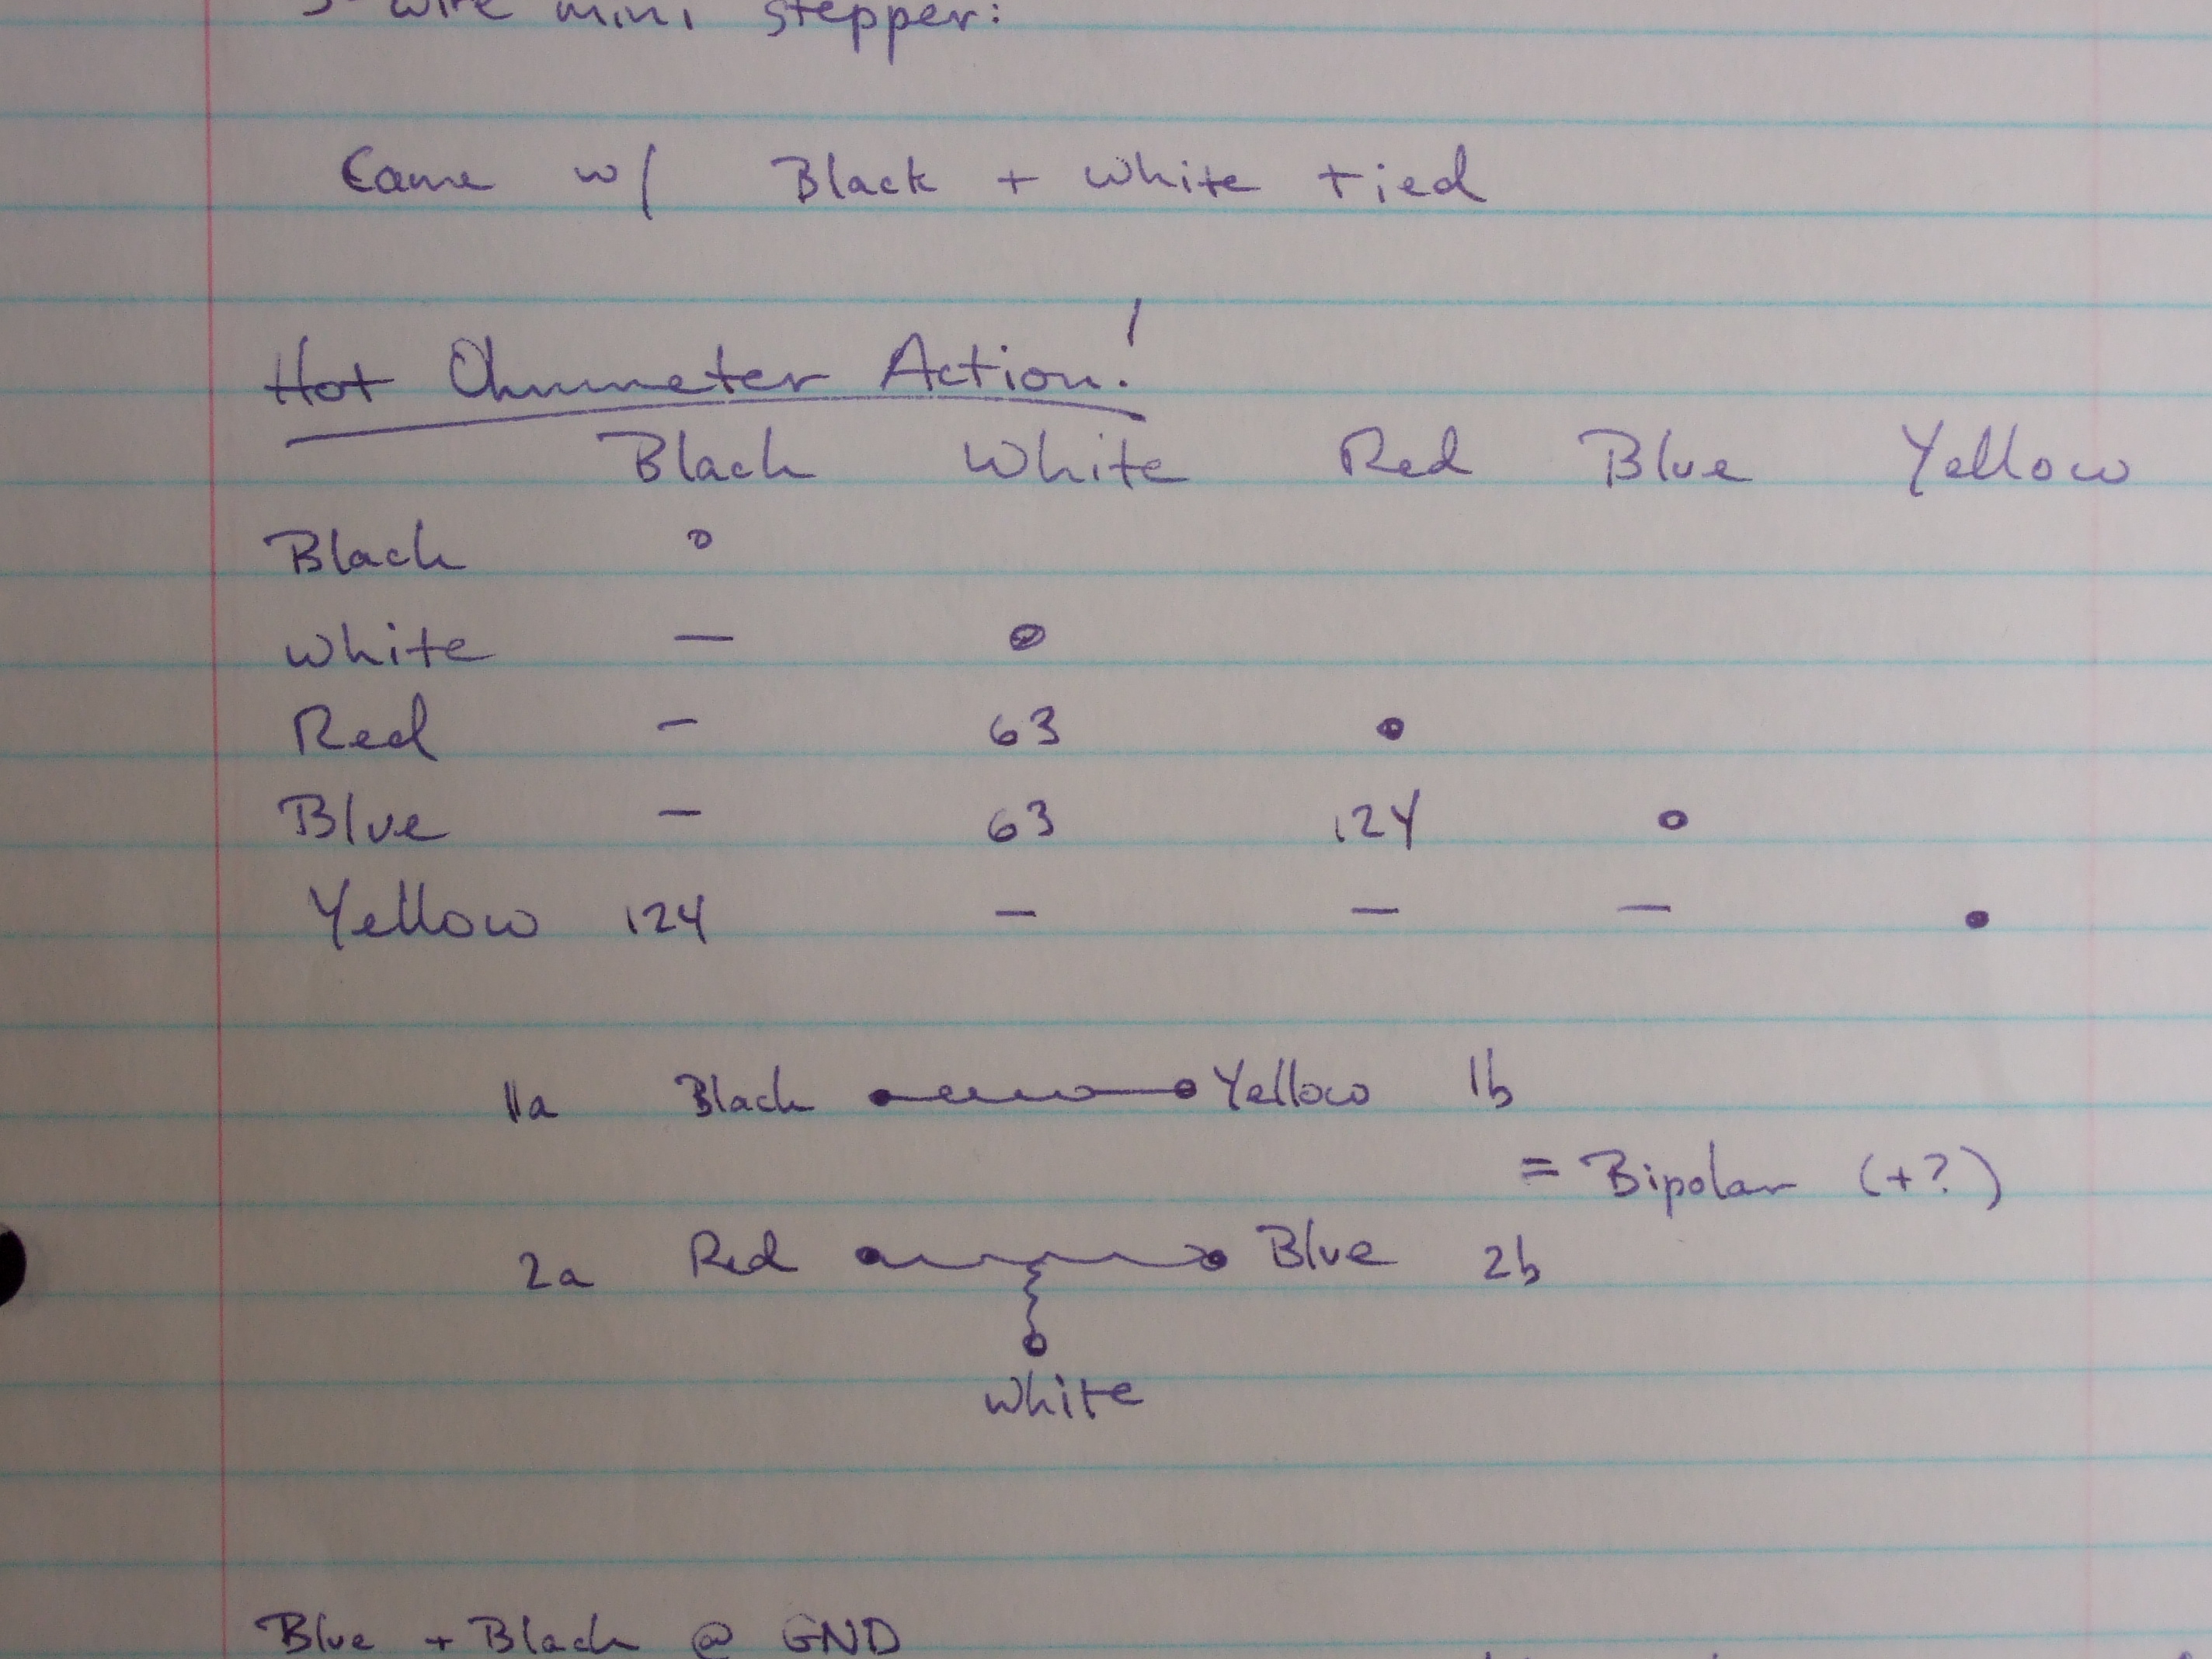 wire mini stepper:
Came w/ Black + White tied
Hot Ohmmeter Action!
Black White Red Blue Yellow
Black o
White — o
Red - 63 •
Blue - 63 124 o
Yellow 124 — — — •
1a Black Yellow 1b
= Bipolar (+?)
2a Red Blue 2b
White
Blue + Black @ GND